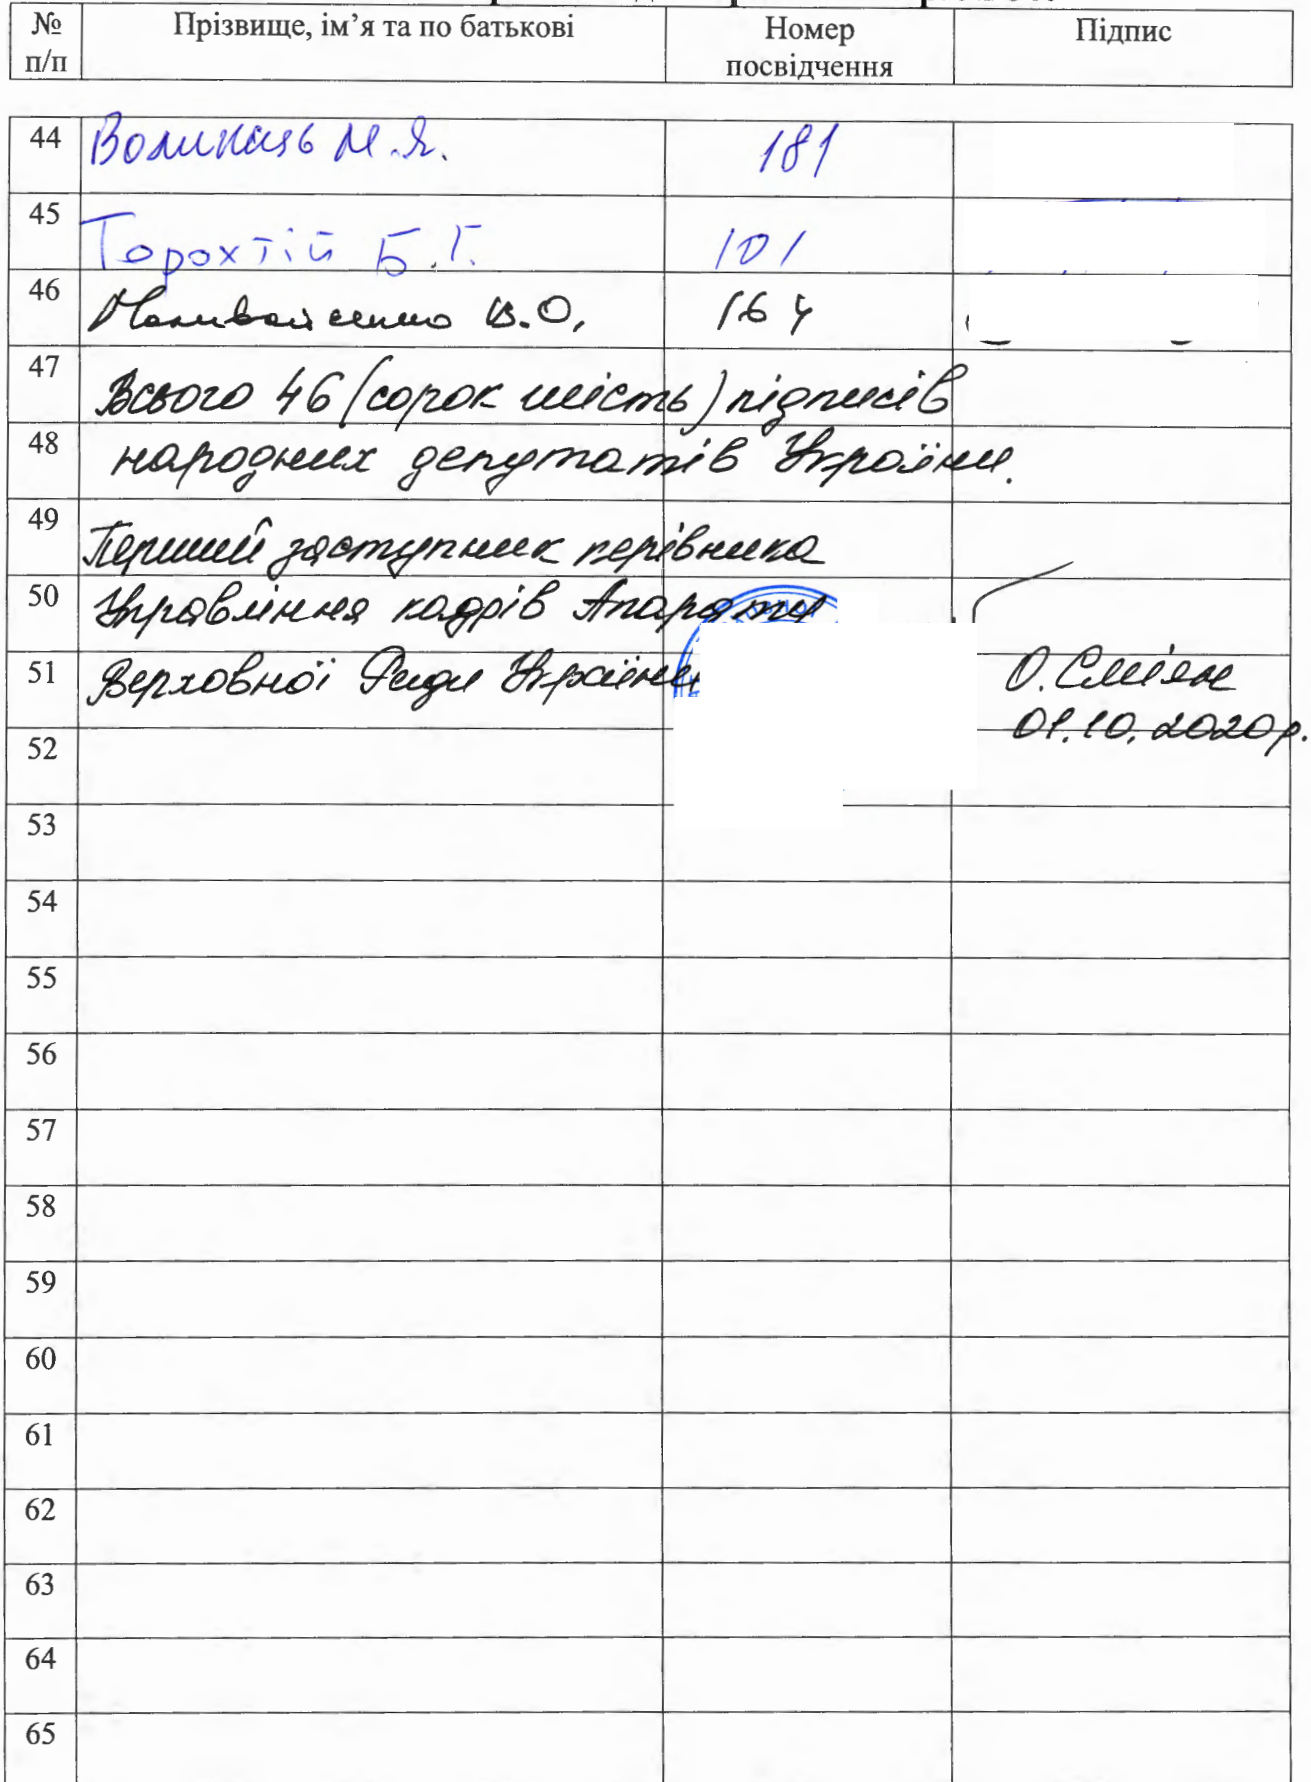 № п/п Прізвище, ім’я та по батькові Номер посвідчення Підпис
44 Волинець М.Я. 181
45 Торохтій Б.Г. 101
46 Наливайченко В.О. 164
47 Всього 46 (сорок шість) підписів
48 народних депутатів України.
49 Перший заступник керівника
50 Управління кадрів Апарату
51 Верховної Ради України О. Сміян
01.10.2020р.
52
53
54
55
56
57
58
59
60
61
62
63
64
65